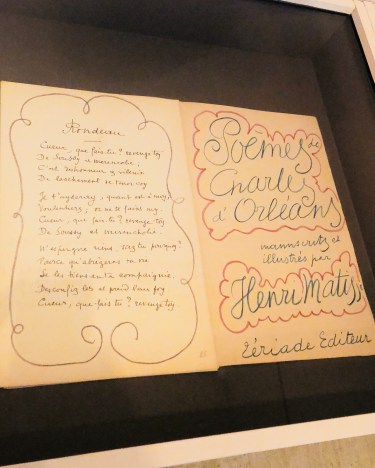 Rondeau
Cueur, que fais-tu ? revenge toy
De Soussy et merencolie,
C'est deshonneur et villenie
De laschement se tenir coy
Je t'ayderay, quant à moy,
voulentiers, or ne te fains mye,
Cueur, que fais-tu ? revenge toy
De Soussy et merencolie.
N'espargne riens, scez tu pourquoy ?
Pource qu'abrégeras ta vie
Se les tiens en ta compaignie.
Desconfiz les et prend leur foy
Cueur, que fais tu ? revenge toy
Poèmes de
Charles
d'Orléans
manuscrits et
illustrés par
Henri Matisse
Tériade Editeur